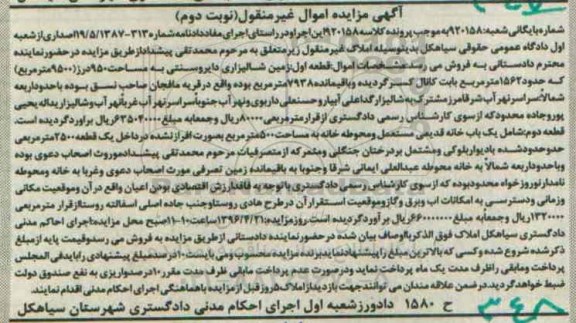 آگهی مزایده اموال غیرمنقول(نوبت دوم)
شماره بایگانی شعبه:۹۲۰۱۵۸ به موجب پرونده کلاسه ۹۲۰۱۵۸ این اجرا و در راستای اجرای مفاد دادنامه شماره ۳۱۳-۱۹/۵/۱۳۸۷ اصداری از شعبه
اول دادگاه عمومی حقوقی سیاهکل بدینوسیله املاک غیرمنقول زیر متعلق به مرحوم محمدتقی پیشداد از طریق مزایده در حضور نماینده
محترم دادستانی به فروش می رسد. مشخصات اموال: قطعه اول: زمین شالیزاری دایر و سنتی به مساحت ۹۵۰ درز(۹۵۰۰ مترمربع)
که حدود ۱۵۶۲ مترمربع بابت کانال کسر گردیده و باقیمانده ۷۹۳۸ مترمربع بوده واقع در قریه مافجان صاحب نسق بوده با حدود اربعه
شمالاً: سراسر نهر آب شرقاً مرز مشترک به شالیزار گداعلی آبیار و حسنعلی داربوی و نهر آب جنوباً سراسر نهر آب غرباً نهر آب و شالیزار یداله یحیی
پور وجاده محدود که از سوی کارشناس رسمی دادگستری از قرار مترمربعی ۸۰۰۰۰ ریال و جمعاً به مبلغ ۶۳۵۰۴۰۰۰۰ ریال برآورد گردیده است.
قطعه دوم: شامل یک باب خانه قدیمی مستعمل و محوطه خانه به مساحت ۵۰۰ مترمربع بصورت افراز نشده در داخل یک قطعه ۲۵۰۰ مترمربعی
حدود حدود شده با دیوار بلوکی و مشتمل بر درختان جنگلی و مثمر که از متصرفیات مرحوم محمدتقی پیشداد موروث اصحاب دعوی بوده
و با حدود اربعه شمالاً به خانه محوطه عبدالعلی ایمانی شرقا و جنوبا به باقیمانده زمین تصرفی مورث اصحاب دعوی و غربا به خانه و محوطه
نامدار نوروزخواه محدود بوده که از سوی کارشناس رسمی دادگستری با توجه به فاقد ارزش اقتصادی بودن اعیان واقع در آن و موقعیت مکانی
زمانی و دسترسی به امکانات آب و برق و گاز و موقعیت استقرار آن در طرح هادی روستا و جنب جاده اصلی اسفالته روستا از قرار مترمربعی
۱۳۲۰۰۰۰ ریال و جمعاً به مبلغ ۶۶۰۰۰۰۰۰۰ ریال برآورد گردیده است. روز مزایده: ۱۳۹۶/۴/۲۱ ساعت ۱۰-۱۱ صبح محل مزایده: اجرای احکام مدنی
دادگستری سیاهکل املاک فوق الذکر با اوصاف بیان شده در حضور نماینده دادستانی از طریق مزایده به فروش می رسد و قیمت پایه از مبلغ
ذکر شده شروع شده و کسی که بالاترین مبلغ را پیشنهاد نماید برنده مزایده محسوب و می بایست ۱۰ درصد مبلغ پیشنهادی را بایدفی المجلس
پرداخت و مابقی را ظرف مدت یک ماه پرداخت نماید و در صورت عدم پرداخت مابقی ظرف مدت مقرر ۱۰ درصد واریزی به نفع صندوق دولت
ضبط خواهد گردید. در ضمن علاقه مندان می توانند جهت بازدید از املاک ۵ روز قبل از مزایده با هماهنگی اجرای احکام مدنی اقدام نمایند.
ح ۱۵۸۰ دادورز شعبه اول اجرای احکام مدنی دادگستری شهرستان سیاهکل